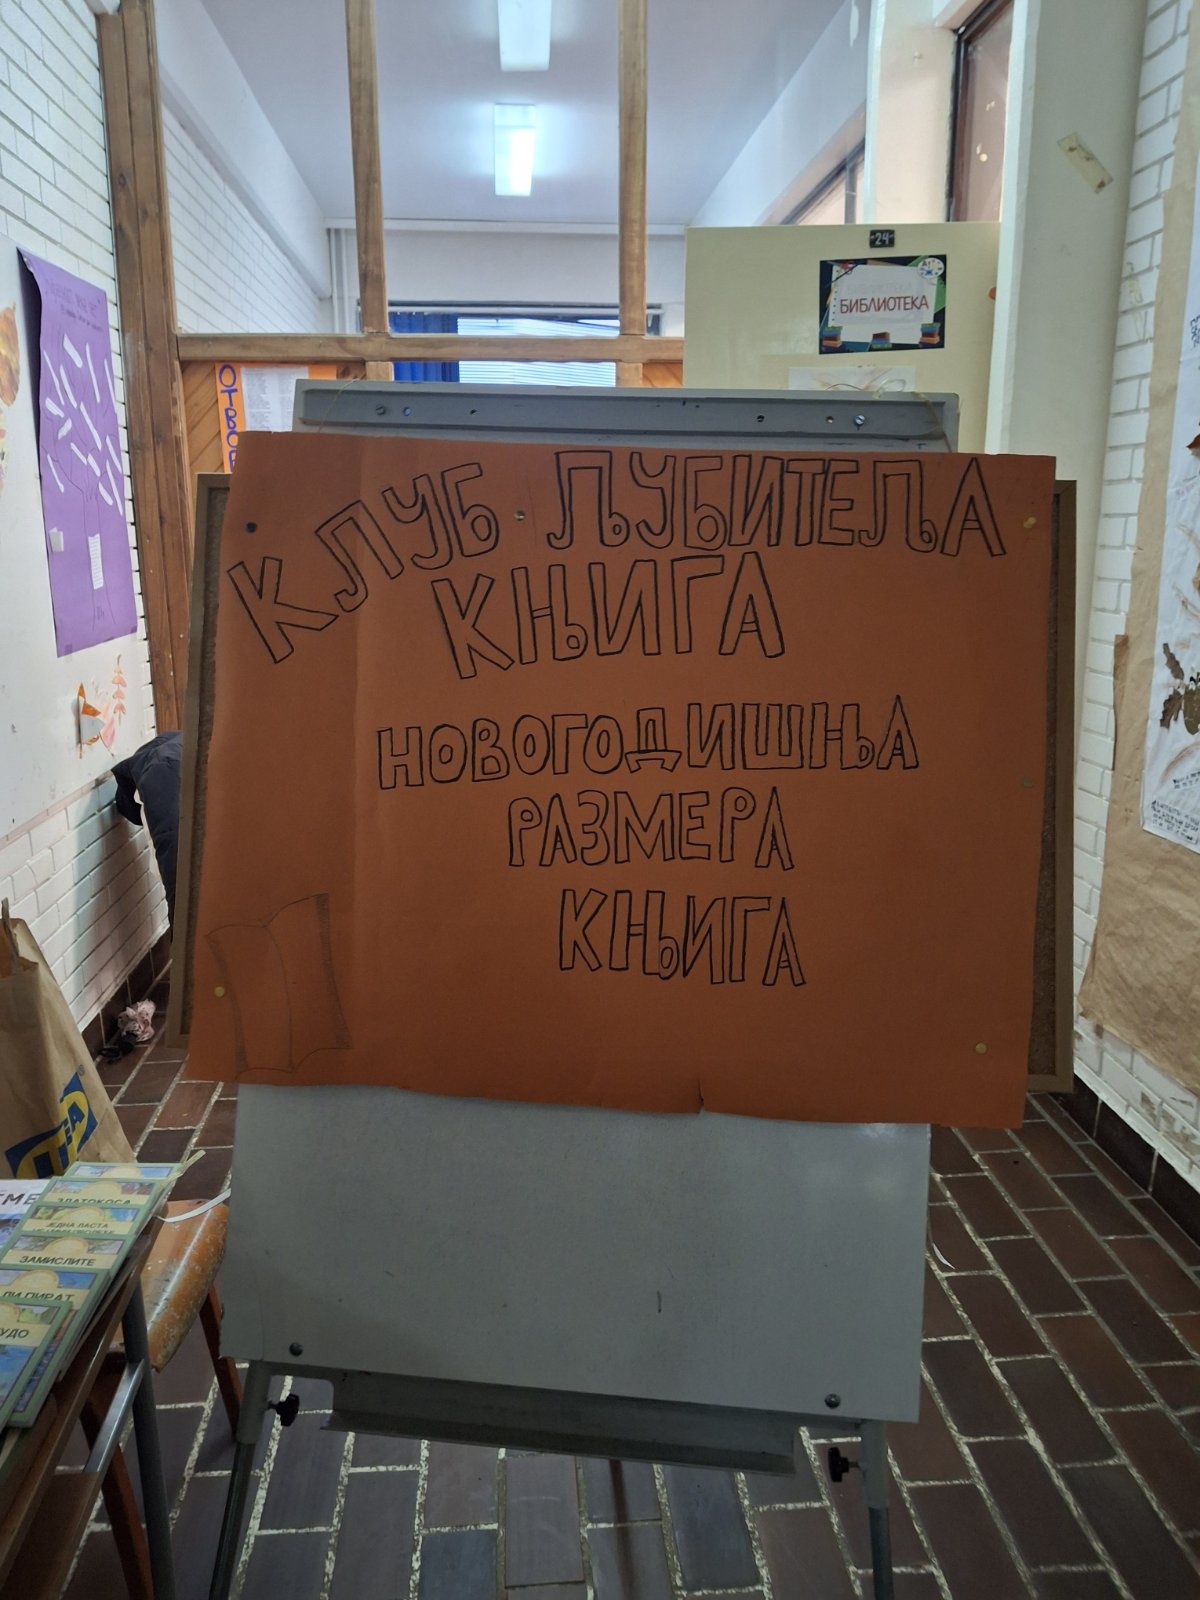 -24-
БИБЛИОТЕКА
КЛУБ ЉУБИТЕЉА
КЊИГА
НОВОГОДИШЊА
РАЗМЕРА
КЊИГА
ЗЛАТОКОСА
ЈЕДНА ЛАСТА
ЗАМИСЛИТЕ
ЛИ ПИРАТ